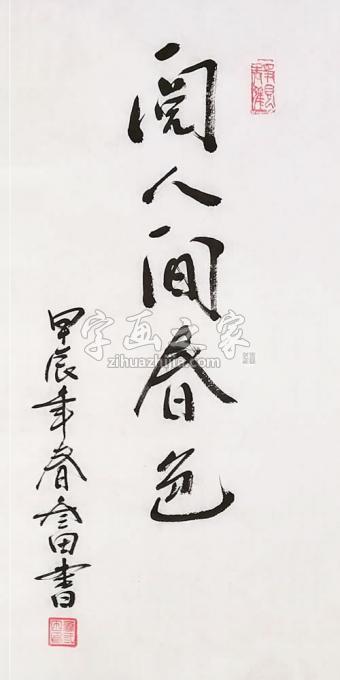 阅人间春色
甲辰年春 田书
字画之家
zihuazhijia.com